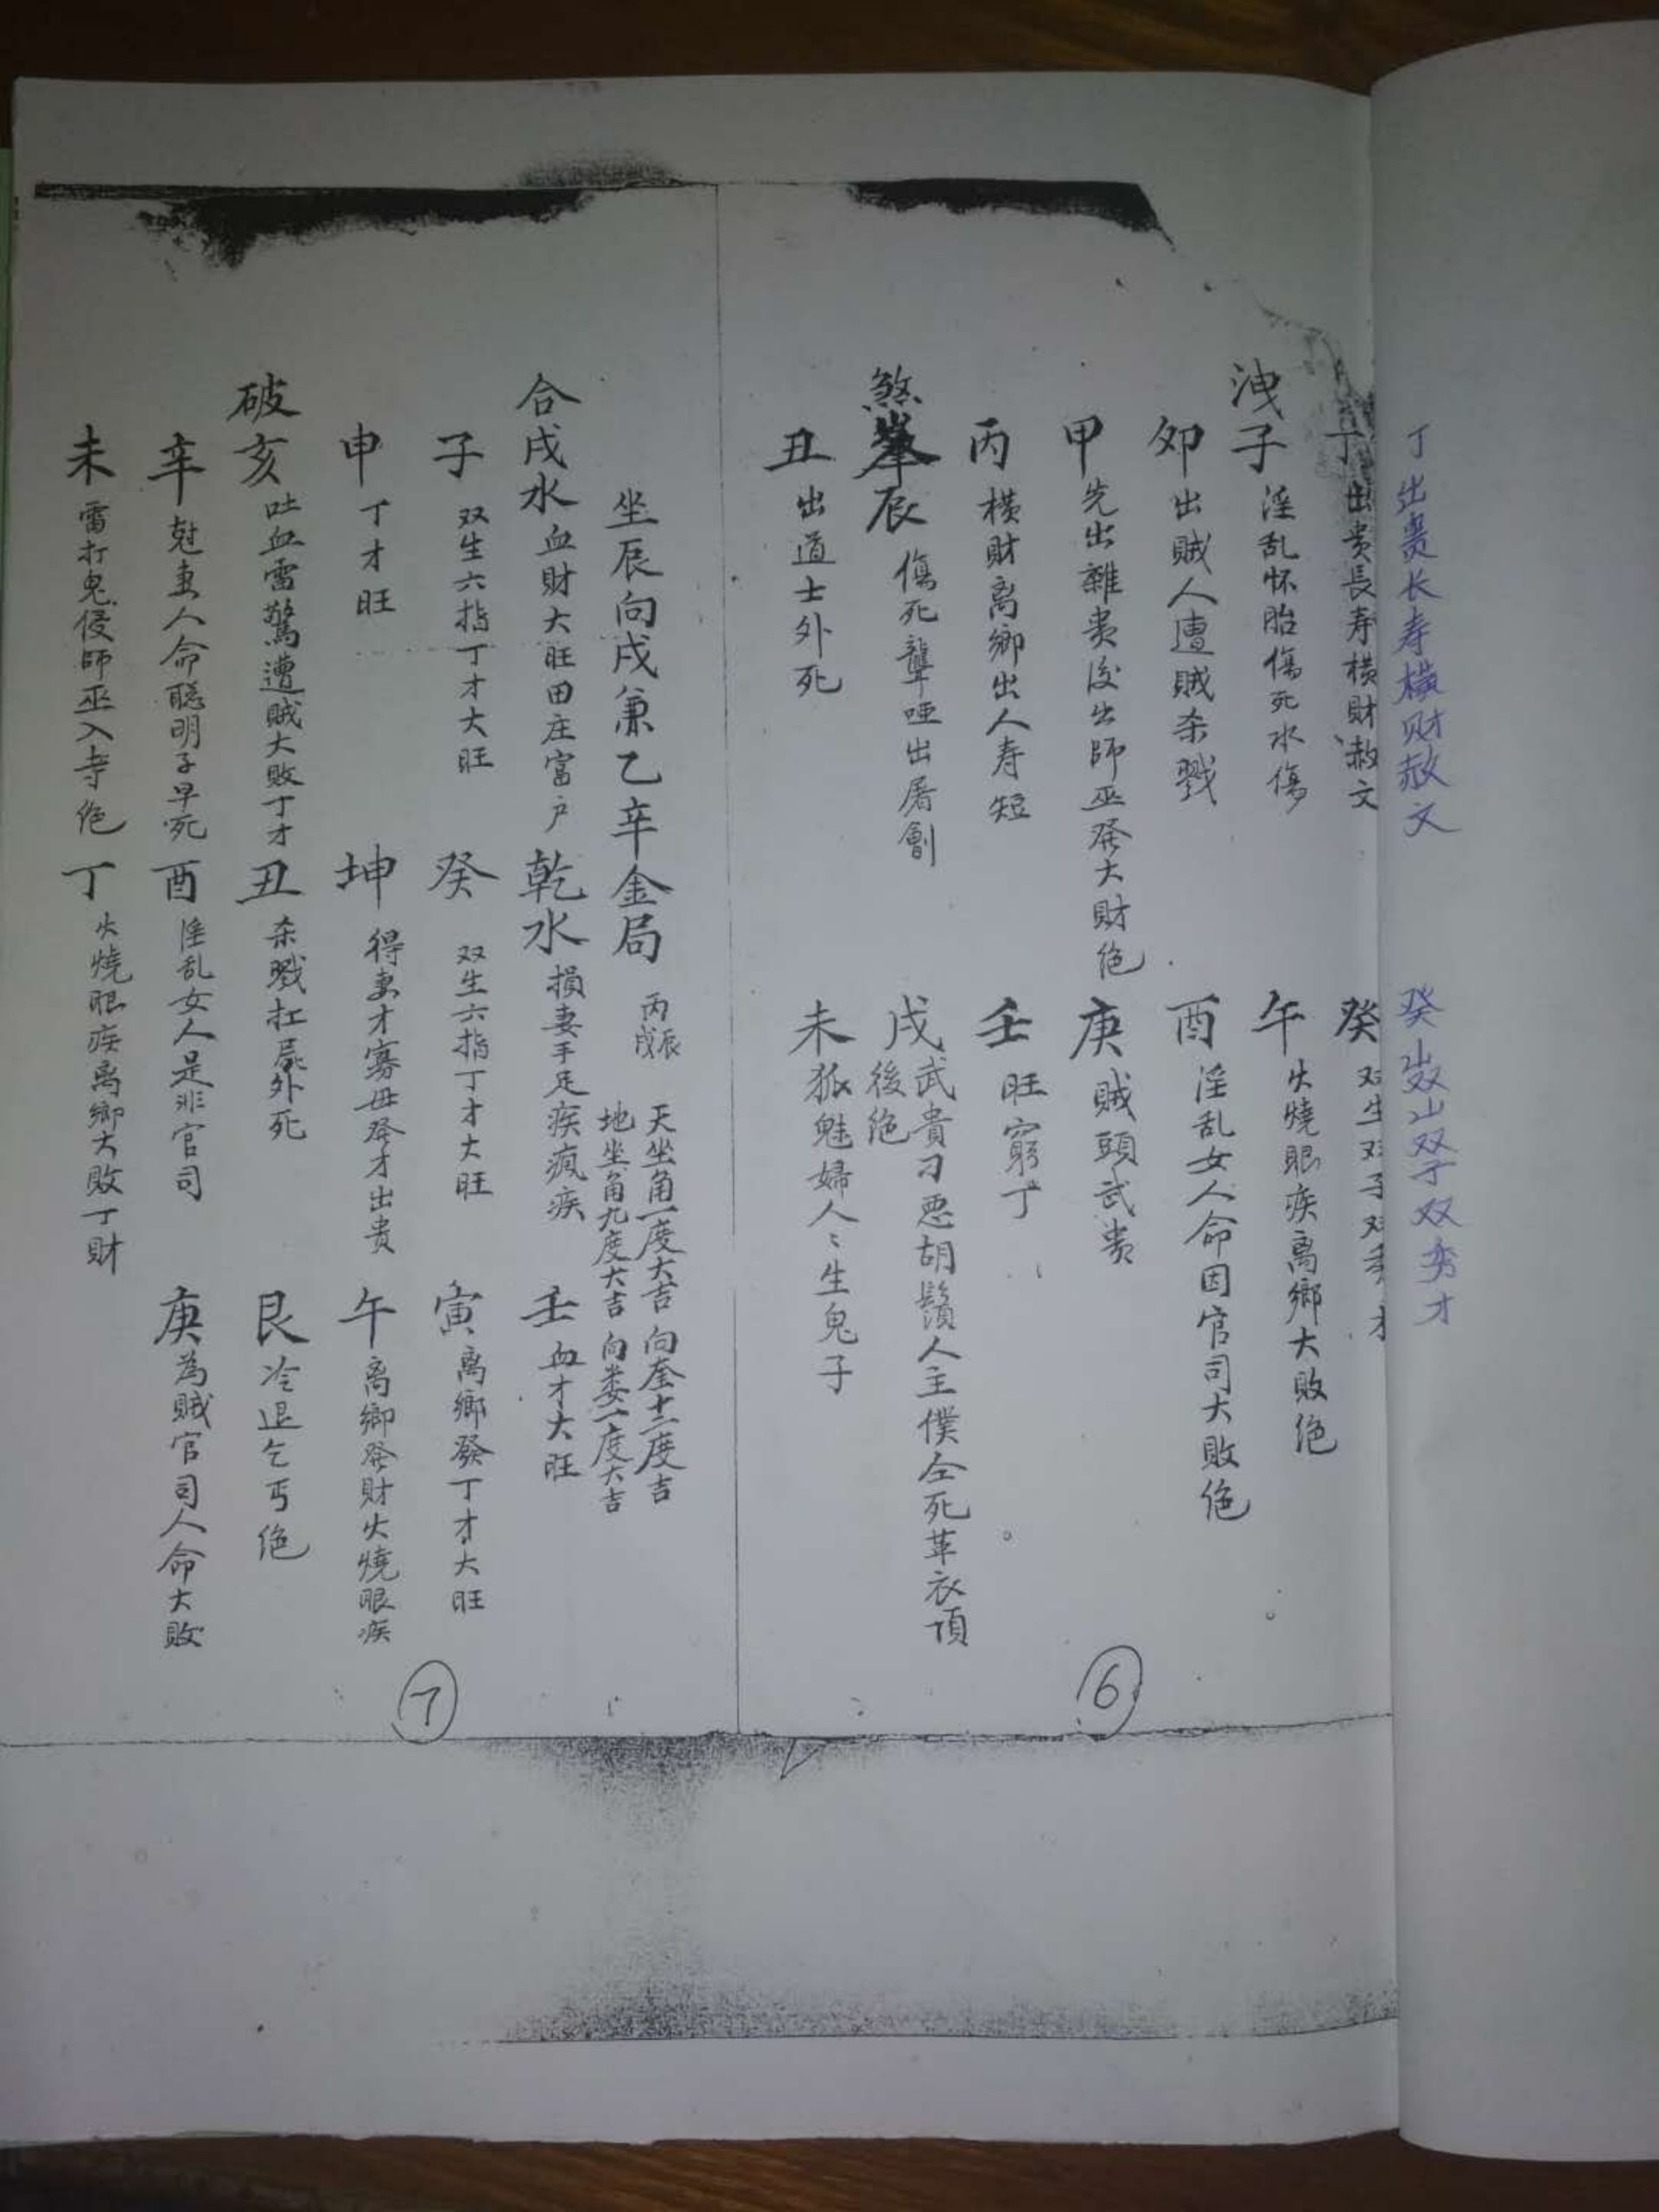 丁出贵长寿横财赦文
癸出双山双子双秀才
丁出贵長寿横財赦文
癸双生双子双秀才
洩子淫乱怀胎傷死水傷
午火燒眼疾离鄉大敗绝
卯出贼人遭贼杀戮
酉淫乱女人命因官司大敗绝
甲先出雜贵後出師巫发大財绝
庚贼頭武贵
丙横財离鄉出人寿短
壬旺窮丁
煞峯辰傷死聾哑出屠劊
戌武貴刁恶胡鬚人主僕仝死革衣頂
後绝
丑出道士外死
未狐魅婦人〻生鬼子
⑥
坐辰向戌兼乙辛金局
丙辰
丙戌
天坐角一度大吉向奎十二度吉
地坐角九度大吉向娄一度大吉
合戌水血財大旺田庄富户
乾水損妻手足疾疯疾
壬血才大旺
子双生六指丁才大旺
癸双生六指丁才大旺
寅离鄉發丁才大旺
申丁才旺
坤得妻才寡母发才出贵
午离鄉发財火燒眼疾
破亥吐血雷驚遭贼大敗丁才
丑杀戮扛屍外死
艮冷退乞丐绝
辛尅妻人命聪明子早死
酉淫乱女人是非官司
庚為贼官司人命大敗
未雷打鬼侵師巫入寺绝
丁火燒眼疾离鄉大敗丁財
⑦